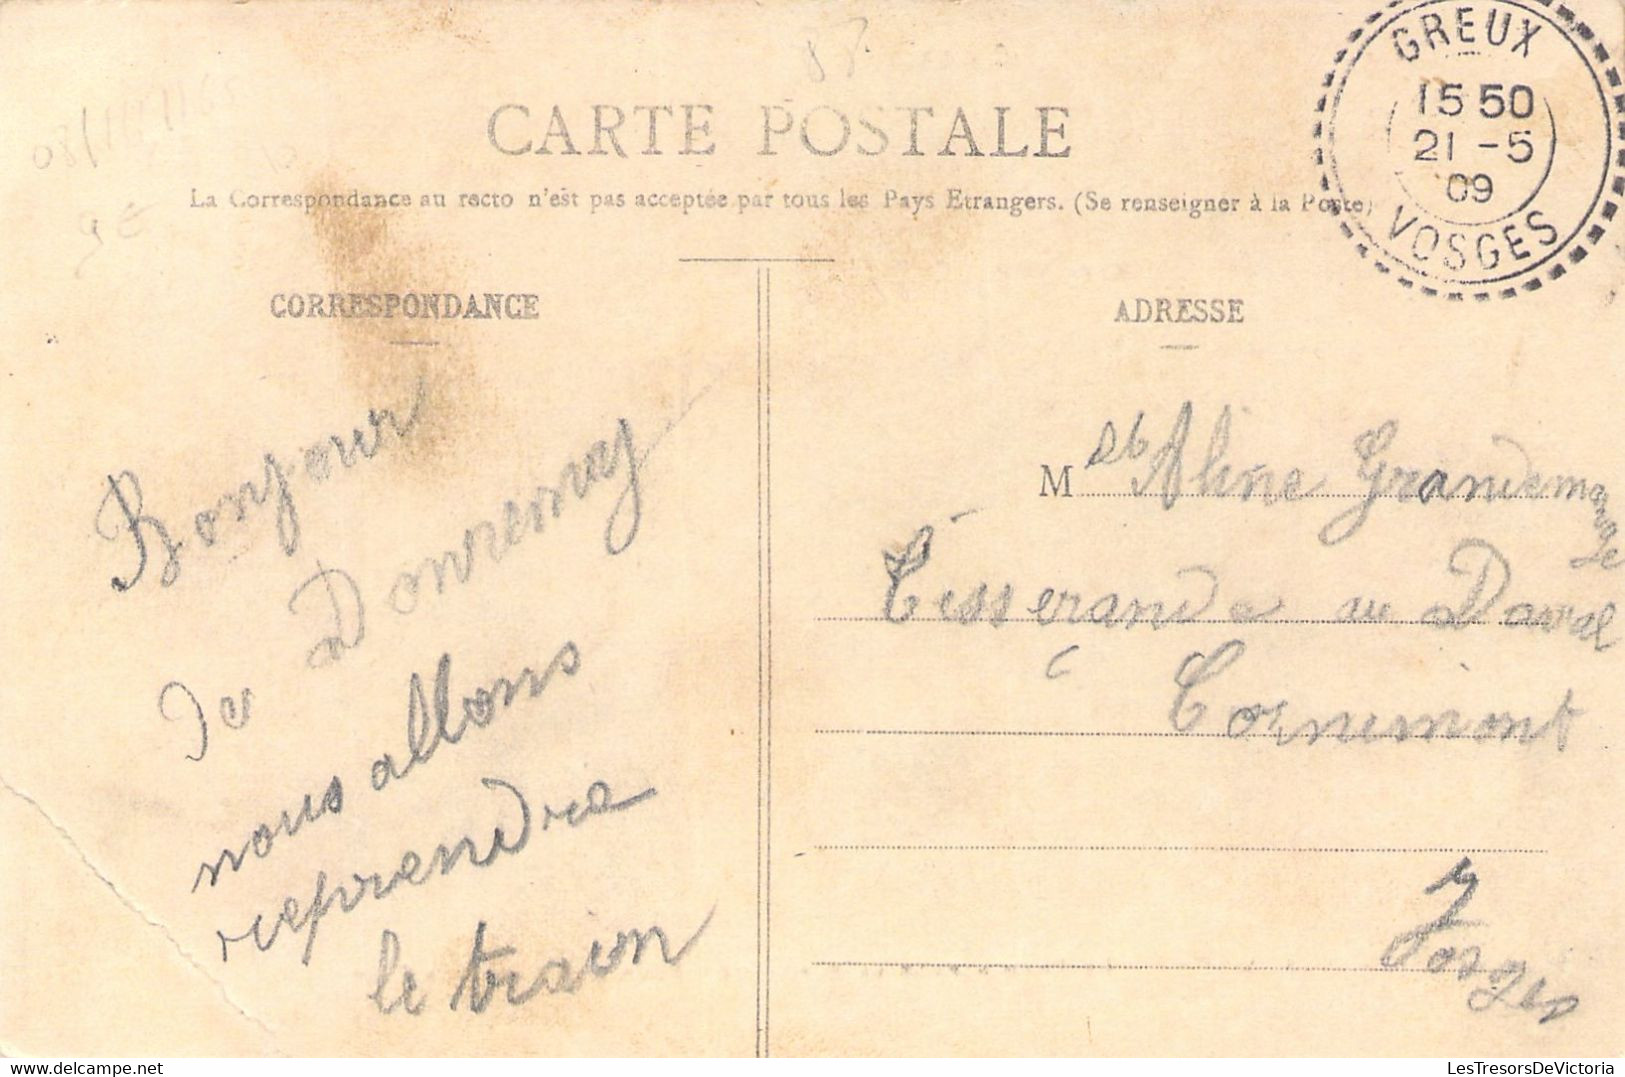 GREUX
15 50
21 - 5
09
VOSGES
88
CARTE POSTALE
La Correspondance au recto n'est pas acceptée par tous les Pays Etrangers. (Se renseigner à la Poste)
CORRESPONDANCE
Bonjour
de Domremy
nous allons
reprendre
le train
ADRESSE
M Aline Grandemange
Tisserande au Daval
Cornimont
Vosges
LesTresorsDeVictoria